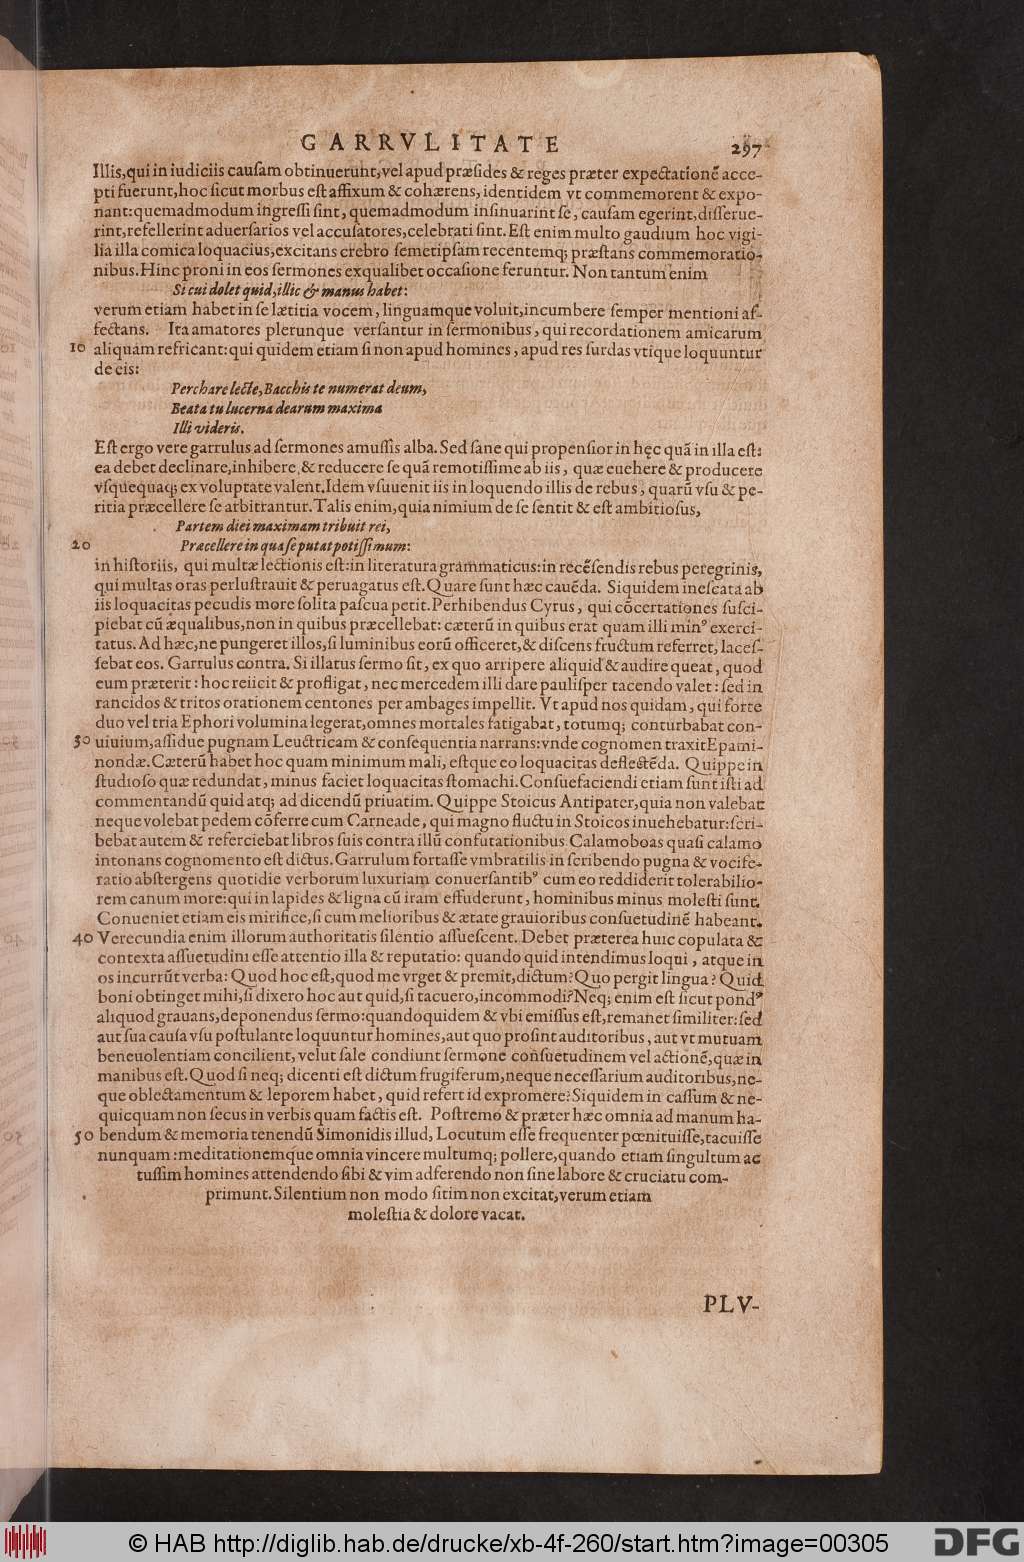 GARRVLITATE 297
Illis, qui in iudiciis cauſam obtinuerunt, vel apud præſides & reges præter expectationẽ acce-
pti fuerunt, hoc ſicut morbus eſt affixum & cohærens, identidem vt commemorent & expo-
nant: quemadmodum ingreſſi ſint, quemadmodum inſinuarint ſe, cauſam egerint, diſſerue-
rint, refellerint aduerſarios vel accuſatores, celebrati ſint. Eſt enim multo gaudium hoc vigi-
lia illa comica loquacius, excitans crebro ſemetipſam recentemq; præſtans commemoratio-
nibus. Hinc proni in eos ſermones exqualibet occaſione feruntur. Non tantum enim
Si cui dolet quid, illic & manus habet:
verum etiam habet in ſe lætitia vocem, linguamque voluit, incumbere ſemper mentioni af-
fectans. Ita amatores plerunque verſantur in ſermonibus, qui recordationem amicarum
10 aliquam refricant: qui quidem etiam ſi non apud homines, apud res ſurdas vtique loquuntur
de eis:
Perchare lecte, Bacchis te numerat deum,
Beata tu lucerna dearum maxima
Illi videris.
Eſt ergo vere garrulus ad ſermones amuſſis alba. Sed ſane qui propenſior in hęc quã in illa eſt:
ea debet declinare, inhibere, & reducere ſe quã remotiſſime ab iis, quæ euehere & producere
vſquequaq; ex voluptate valent. Idem vſuuenit iis in loquendo illis de rebus, quarũ vſu & pe-
ritia præcellere ſe arbitrantur. Talis enim, quia nimium de ſe ſentit & eſt ambitioſus,
Partem diei maximam tribuit rei,
20 Præcellere in qua ſe putat potiſſimum:
in hiſtoriis, qui multæ lectionis eſt: in literatura grammaticus: in recẽſendis rebus peregrinis,
qui multas oras perluſtrauit & peruagatus eſt. Quare ſunt hæc cauẽda. Siquidem ineſcata ab
iis loquacitas pecudis more ſolita paſcua petit. Perhibendus Cyrus, qui cõcertationes ſuſci-
piebat cũ æqualibus, non in quibus præcellebat: cæterũ in quibus erat quam illi minꝰ exerci-
tatus. Ad hæc, ne pungeret illos, ſi luminibus eorũ officeret, & diſcens fructum referret, laceſ-
ſebat eos. Garrulus contra. Si illatus ſermo ſit, ex quo arripere aliquid & audire queat, quod
eum præterit: hoc reiicit & profligat, nec mercedem illi dare pauliſper tacendo valet: ſed in
rancidos & tritos orationem centones per ambages impellit. Vt apud nos quidam, qui forte
duo vel tria Ephori volumina legerat, omnes mortales fatigabat, totumq; conturbabat con-
30 uiuium, aſſidue pugnam Leuctricam & conſequentia narrans: vnde cognomen traxit Epami-
nondæ. Cæterũ habet hoc quam minimum mali, eſtque eo loquacitas deflectẽda. Quippe in
ſtudioſo quæ redundat, minus faciet loquacitas ſtomachi. Conſuefaciendi etiam ſunt iſti ad
commentandũ quid atq; ad dicendũ priuatim. Quippe Stoicus Antipater, quia non valebat
neque volebat pedem cõferre cum Carneade, qui magno fluctu in Stoicos inuehebatur: ſcri-
bebat autem & referciebat libros ſuis contra illũ confutationibus Calamoboas quaſi calamo
intonans cognomento eſt dictus. Garrulum fortaſſe vmbratilis in ſcribendo pugna & vocife-
ratio abſtergens quotidie verborum luxuriam conuerſantibꝰ cum eo reddiderit tolerabilio-
rem canum more: qui in lapides & ligna cũ iram effuderunt, hominibus minus moleſti ſunt.
Conueniet etiam eis mirifice, ſi cum melioribus & ætate grauioribus conſuetudinẽ habeant.
40 Verecundia enim illorum authoritatis ſilentio aſſueſcent. Debet præterea huic copulata &
contexta aſſuetudini eſſe attentio illa & reputatio: quando quid intendimus loqui, atque in
os incurrũt verba: Quod hoc eſt, quod me vrget & premit, dictum? Quo pergit lingua? Quid
boni obtinget mihi, ſi dixero hoc aut quid, ſi tacuero, incommodi? Neq; enim eſt ſicut pondꝰ
aliquod grauans, deponendus ſermo: quandoquidem & vbi emiſſus eſt, remanet ſimiliter: ſed
aut ſua cauſa vſu poſtulante loquuntur homines, aut quo proſint auditoribus, aut vt mutuam
beneuolentiam concilient, velut ſale condiunt ſermone conſuetudinem vel actionẽ, quæ in
manibus eſt. Quod ſi neq; dicenti eſt dictum frugiferum, neque neceſſarium auditoribus, ne-
que oblectamentum & leporem habet, quid refert id expromere? Siquidem in caſſum & ne-
quicquam non ſecus in verbis quam factis eſt. Poſtremo & præter hæc omnia ad manum ha-
50 bendum & memoria tenendũ Simonidis illud, Locutum eſſe frequenter pœnituiſſe, tacuiſſe
nunquam: meditationemque omnia vincere multumq; pollere, quando etiam ſingultum ac
tuſſim homines attendendo ſibi & vim adferendo non ſine labore & cruciatu com-
primunt. Silentium non modo ſitim non excitat, verum etiam
moleſtia & dolore vacat.
PLV-
© HAB http://diglib.hab.de/drucke/xb-4f-260/start.htm?image=00305
DFG